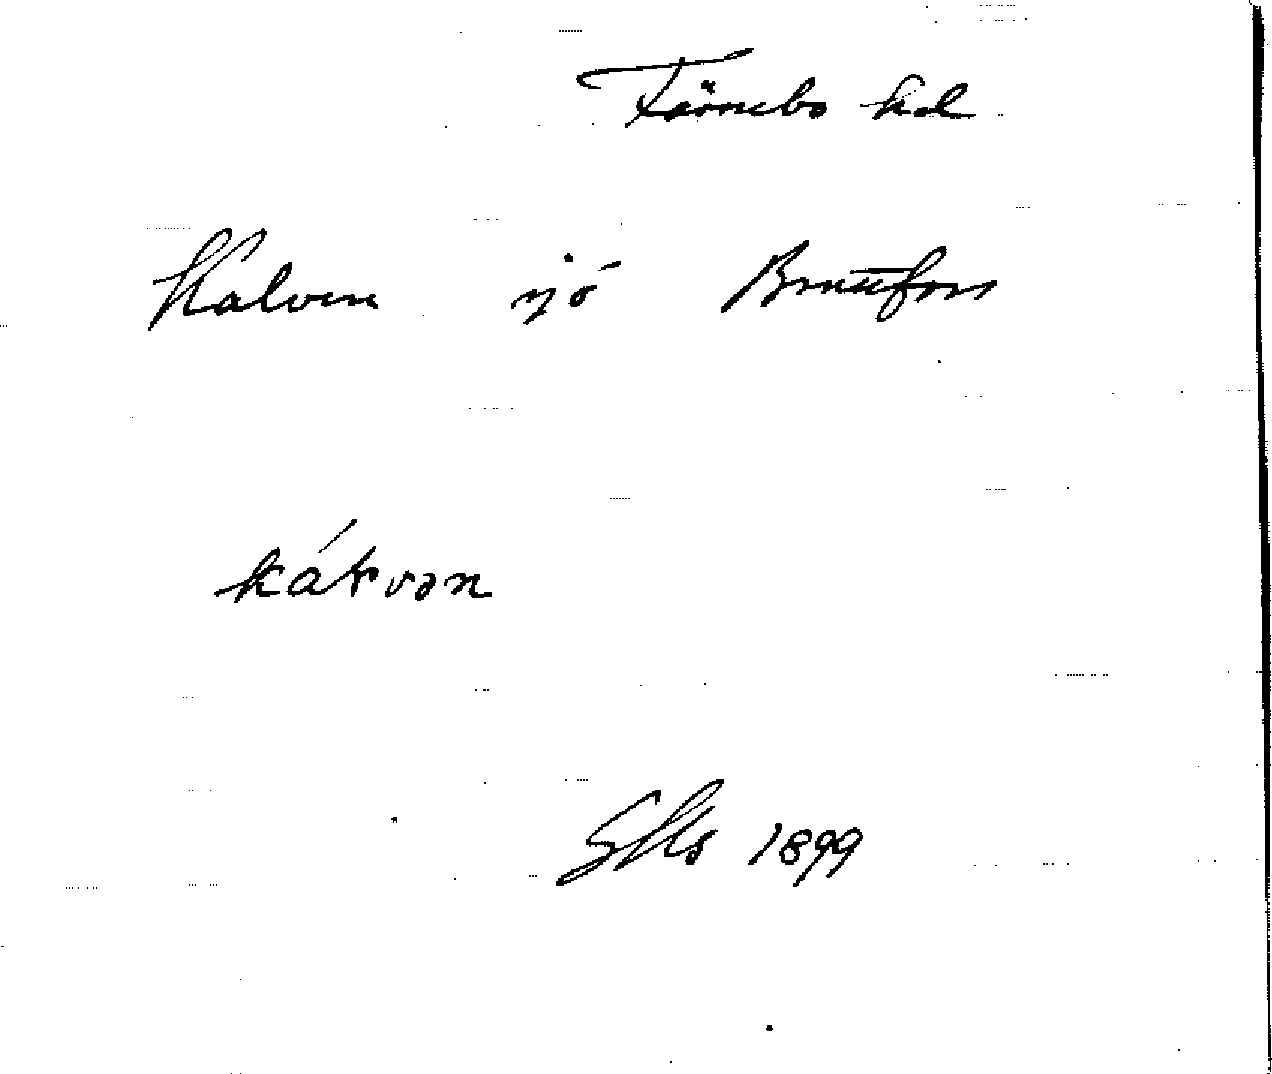 Färnebo hd
Kalven sjö Brattfors
kálvən
1899